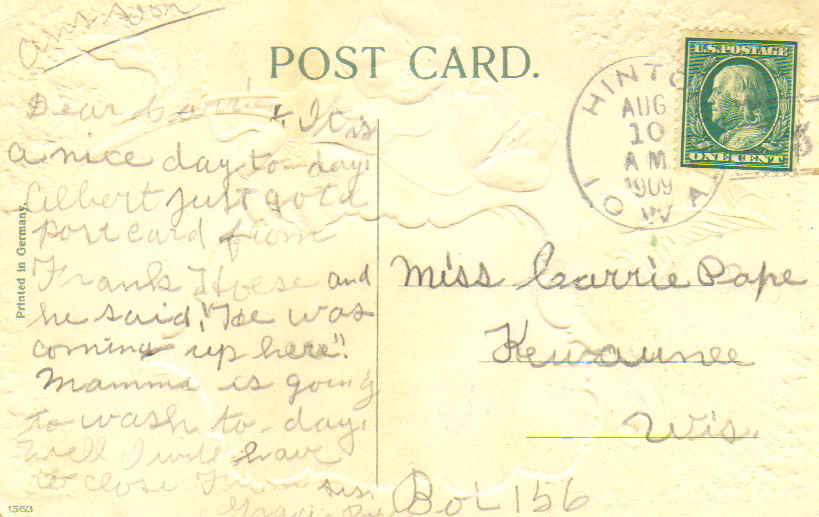 ans soon
POST CARD.
Dear Carrie
It is
a nice day to-day.
Albert just got a
post card from
Frank Hoese and
he said, "He was
coming up here".
Mamma is going
to wash to-day.
Well I will have
to close From sis.
Printed in Germany.
1563
U.S. POSTAGE
ONE CENT
HINTO
AUG
10
A M
1909
IOWA
Miss Carrie Pape
Kewaunee
Wis.
Box 156